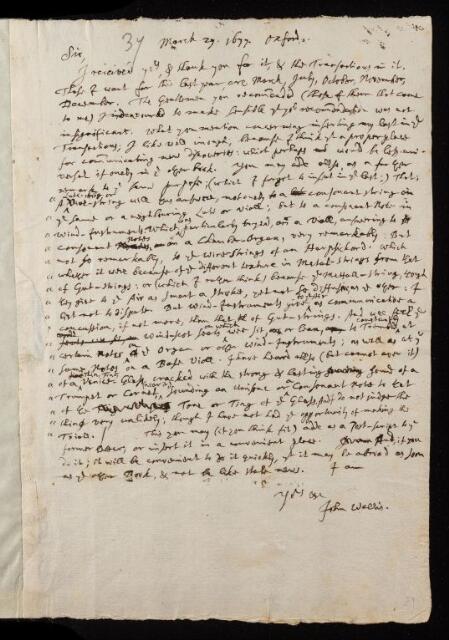 37 March 29. 1677. Oxford.
Sir,
I received yrs, & thank you for it, & the Transactions in it.
Those I want for this last year are March, July, October, November,
December. The Gentlemen you recommended (those of them that come
to me) I indeavoured to make sensible yt yor recommendation was not
insignificant. What you mention concerning inserting my last in ye
Transactions, I like well inough; because I think it a proper place
for communicating new discoveries; which perhaps would be less uni-
versal if onely in ye other book. You may adde allso, as a further
remark to ye same purpose, (which I forgot to insert in ye last;) That,
" a string will thus answer, not onely to a consonant string on
" ye same or a neighbouring Lute or Viol; but to a consonant Note in
" wind-Instruments: Which was particularly tryed, on a Viol, answering to ye
" consonant Notes on a Chamber-Organ, very remarkably: But
" not so remarkably, to ye wire-strings of an Harpsicord. which
" whether it were because of ye different texture in Metal-strings from that
" of Gut-strings; or (which I rather think) because ye Metal-string, though
" they give to ye Air as smart a stroke, yet not so diffusive as ye other; I
" list not to dispute. But Wind-Instruments give to ye Air as communicative a
" concussion, if not more, than that of Gut-strings. And we feel ye
" Wainscot seats we sit or lean on, to tremble constantly at
" certain Notes on ye Organ or other Wind-Instruments; as well as at ye
" same Notes on a Base Viol. I have heard allso (but cannot aver it)
" of a thin, fine Venice-Glass, cracked with the strong & lasting sound of a
" Trumpet or Cornet, sounding an Unison or a Consonant Note to that
" of ye Tone or Ting of ye Glass. I do not judge the
" thing very unlikely; though I have not had ye opportunity of making the
" Trial. This you may (if you think fit) adde as a Post-script to ye
former Letter, or insert it in a convenient place. And, if you
do it; it will be convenient to do it quickly, yt it may be abroad as soon
as ye other Book, & not be like stale news. I am
Yrs &c
John Wallis.